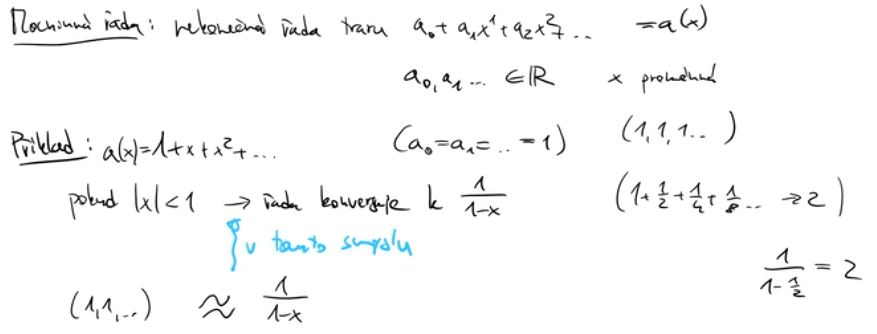 Mocninná řada: nekonečná řada tvaru a₀ + a₁x¹ + a₂x² + .. = a(x)
a₀, a₁ ... ∈ ℝ x proměnná
Příklad: a(x) = 1 + x + x² + ... (a₀ = a₁ = .. = 1) (1, 1, 1 .. )
pokud |x| < 1 → řada konverguje k 1/(1-x) (1 + 1/2 + 1/4 + 1/8 ... → 2)
v tomto smyslu
1/(1 - 1/2) = 2
(1, 1, ...) ≈ 1/(1-x)